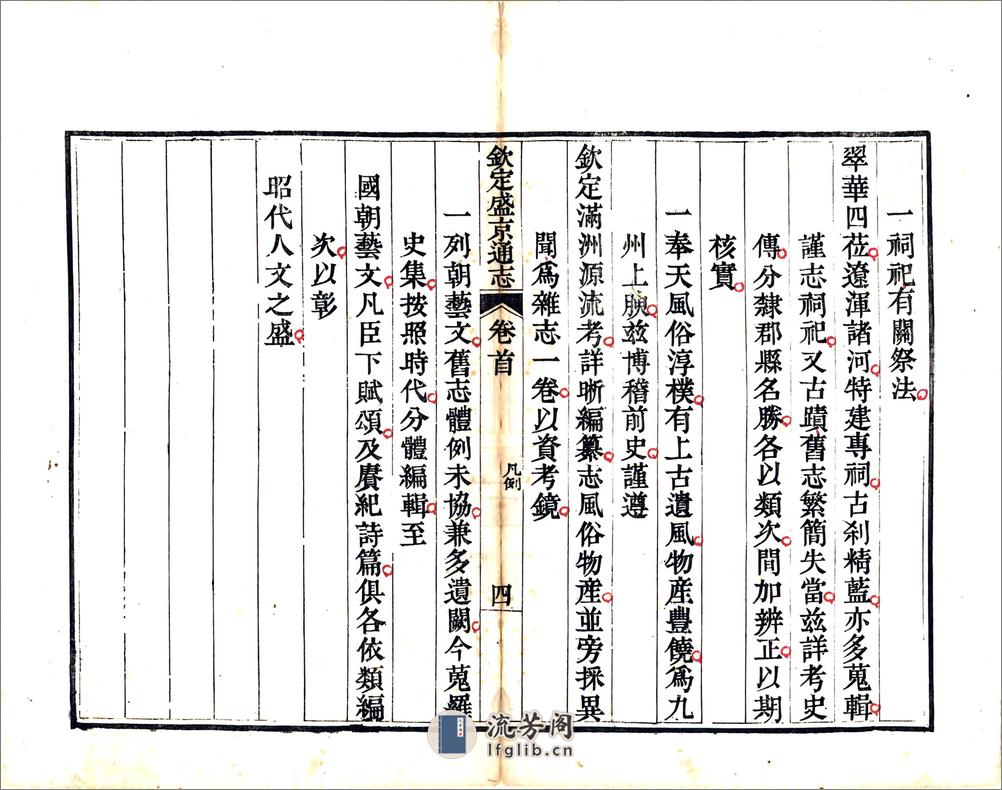 一祠祀有關祭法
翠華四莅遼渾諸河特建專祠古刹精藍亦多蒐輯
謹志祠祀又古蹟舊志繁簡失當兹詳考史
傳分隸郡縣名勝各以類次間加辨正以期
核實
一奉天風俗淳樸有上古遺風物産豐饒爲九
州上腴兹博稽前史謹遵
欽定滿洲源流考詳晰編纂志風俗物産並旁採異
聞爲雜志一卷以資考鏡
欽定盛京通志 卷首 凡例 四
一列朝藝文舊志體例未協兼多遺闕今蒐羅
史集按照時代分體編輯至
國朝藝文凡臣下賦頌及賡紀詩篇俱各依類編
次以彰
昭代人文之盛
流芳阁
lfglib.cn